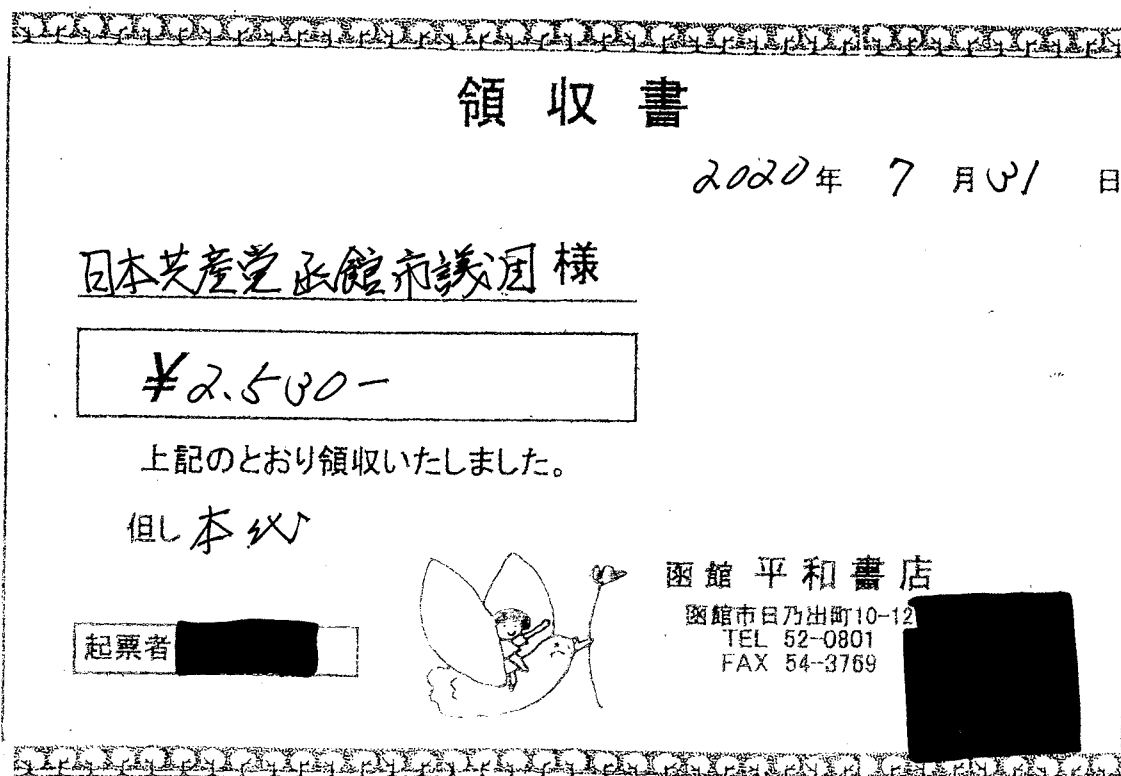 領収書
2020年 7月31日
日本共産党函館市議団 様
¥2.530-
上記のとおり領収いたしました。
但し 本代
函館 平和書店
函館市日乃出町10-12
TEL 52-0801
FAX 54-3769
起票者